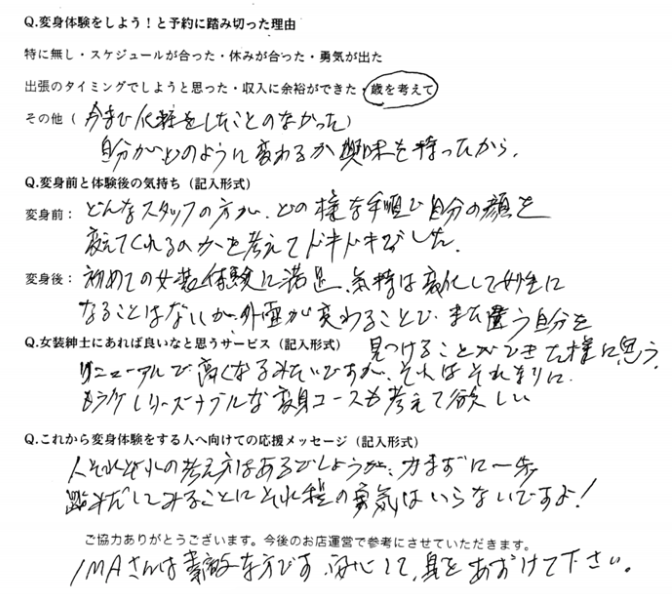 Q.変身体験をしよう！と予約に踏み切った理由
特に無し・スケジュールが合った・休みが合った・勇気が出た
出張のタイミングでしようと思った・収入に余裕ができた・歳を考えて
その他（今まで化粧をしたことのなかった）
自分がどのように変わるか興味を持ったから。
Q.変身前と体験後の気持ち（記入形式）
変身前：どんなスタッフの方が、どの様な手順で自分の顔を
変えてくれるのかを考えてドキドキでした。
変身後：初めての女装体験に満足、気持は変化して女性に
なることはないが、外面が変わることで、また違う自分を
見つけることができた様に思う。
Q.女装紳士にあれば良いなと思うサービス（記入形式）
リニューアルで高くなるみたいですが、それはそれなりに。
もう少しリーズナブルな変身コースも考えて欲しい
Q.これから変身体験をする人へ向けての応援メッセージ（記入形式）
人それぞれの考え方はあるでしょうが、力まずに一歩
踏みだしてみることにそれ程の勇気はいらないですよ！
ご協力ありがとうございます。今後のお店運営で参考にさせていただきます。
IMAさんは素敵な方です。安心して、身をあずけて下さい。